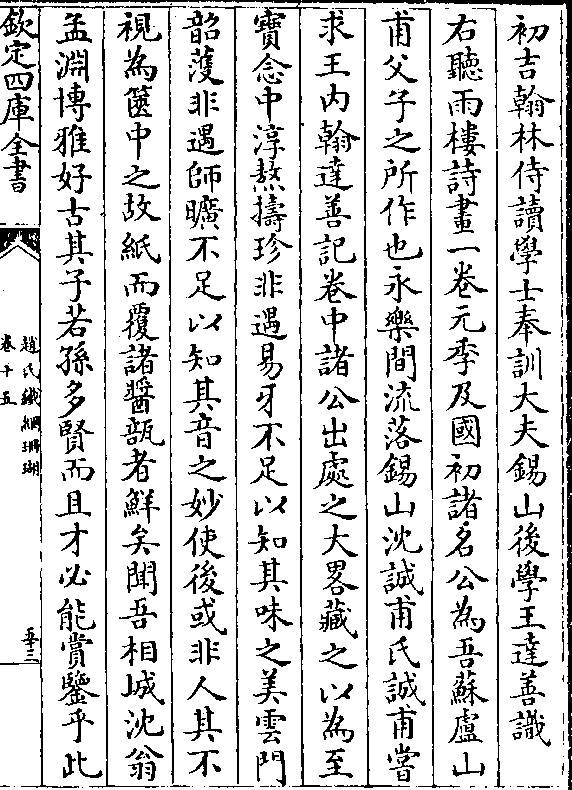 初吉翰林侍讀學士奉訓大夫錫山後學王達善識
右聽雨樓詩畫一卷元季及國初諸名公為吾蘇盧山
甫父子之所作也永樂間流落錫山沈誠甫氏誠甫嘗
求王内翰達善記卷中諸公出處之大畧藏之以為至
寳念中淳熬擣珍非遇易牙不足以知其味之美雲門
韶頀非遇師曠不足以知其音之妙使後或非人其不
視為篋中之故紙而覆諸醬瓿者鮮矣聞吾相城沈翁
孟淵博雅好古其子若孫多賢而且才必能賞鑒乎此
欽定四庫全書
趙氏鐵網珊瑚
卷十五
至三